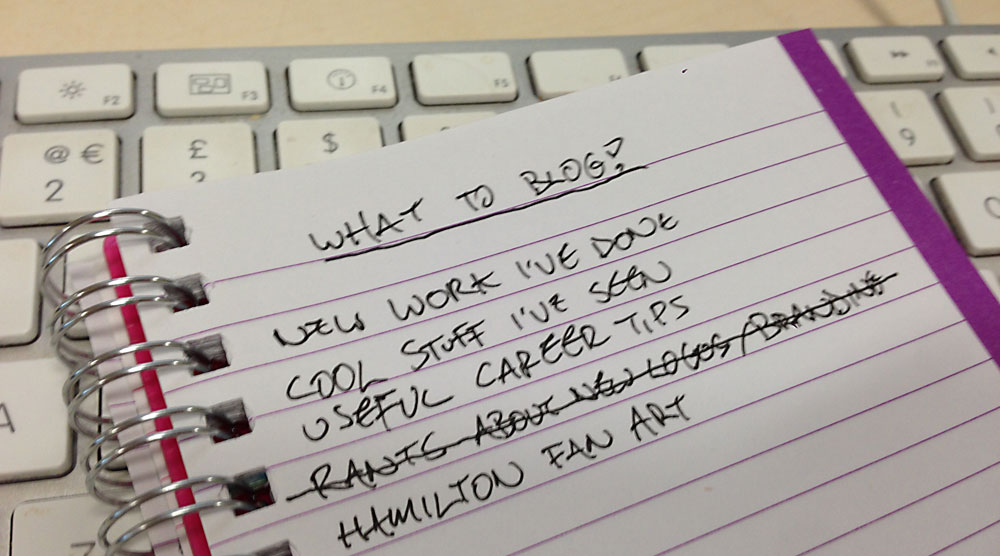 F2
F3
F4
F5
@ €
2
£
$
9
WHAT TO BLOG?
NEW WORK I'VE DONE
COOL STUFF I'VE SEEN
USEFUL CAREER TIPS
RANTS ABOUT NEW LOGOS / BRANDING
HAMILTON FAN ART